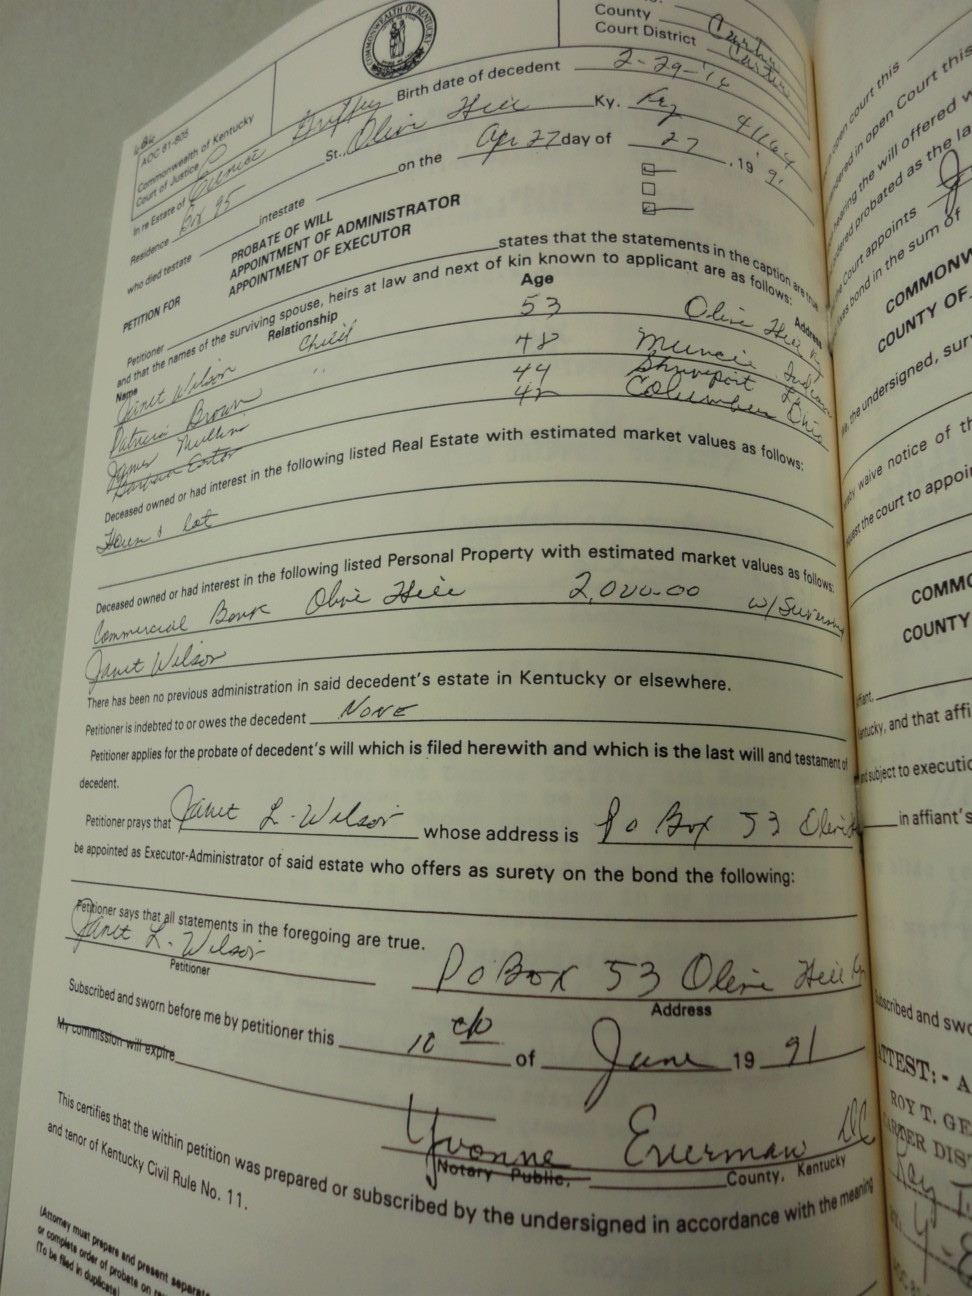 COMMONWEALTH OF KENTUCKY
AOC 81-805
Commonwealth of Kentucky
Court of Justice
County Carter
Court District Carter
In re Estate of Bernice Griffey Birth date of decedent 2-29-'16
Residence Box 95 St., Olive Hill Ky. Ky 41164
who died testate intestate on the Apr 27 day of 27, 19 91
PETITION FOR
PROBATE OF WILL
APPOINTMENT OF ADMINISTRATOR
APPOINTMENT OF EXECUTOR
Petitioner states that the statements in the caption are true
and that the names of the surviving spouse, heirs at law and next of kin known to applicant are as follows:
Name Relationship Age Address
Janet Wilson Child 53 Olive Hill Ky
Patricia Brown " 48 Muncie Indiana
James Mullins 44 Shreveport La
Barbara 42 Columbus Ohio
Deceased owned or had interest in the following listed Real Estate with estimated market values as follows:
House & lot
Deceased owned or had interest in the following listed Personal Property with estimated market values as follows:
Commercial Bank Olive Hill 2,000.00 w/
Janet Wilson
There has been no previous administration in said decedent's estate in Kentucky or elsewhere.
Petitioner is indebted to or owes the decedent None
Petitioner applies for the probate of decedent's will which is filed herewith and which is the last will and testament of
decedent.
Petitioner prays that Janet L. Wilson whose address is Po Box 53 Olive
be appointed as Executor-Administrator of said estate who offers as surety on the bond the following:
Petitioner says that all statements in the foregoing are true.
Janet L. Wilson PO Box 53 Olive Hill Ky
Petitioner Address
Subscribed and sworn before me by petitioner this 10th of June 19 91
My commission will expire
Yvonne Everman DC
Notary Public, County, Kentucky
This certifies that the within petition was prepared or subscribed by the undersigned in accordance with the meaning
and tenor of Kentucky Civil Rule No. 11.
(Attorney must prepare and present separate
or complete order of probate on
(To be filed in duplicate)
open court this
in open Court this
the will offered
probated as the la
Court appoints
bond in the sum of
COMMONW
COUNTY OF
the undersigned, sur
waive notice of th
the court to appoin
COMMO
COUNTY
and that affi
subject to executio
in affiant's
and swo
ATTEST: - A
ROY T. GE
CARTER DIS